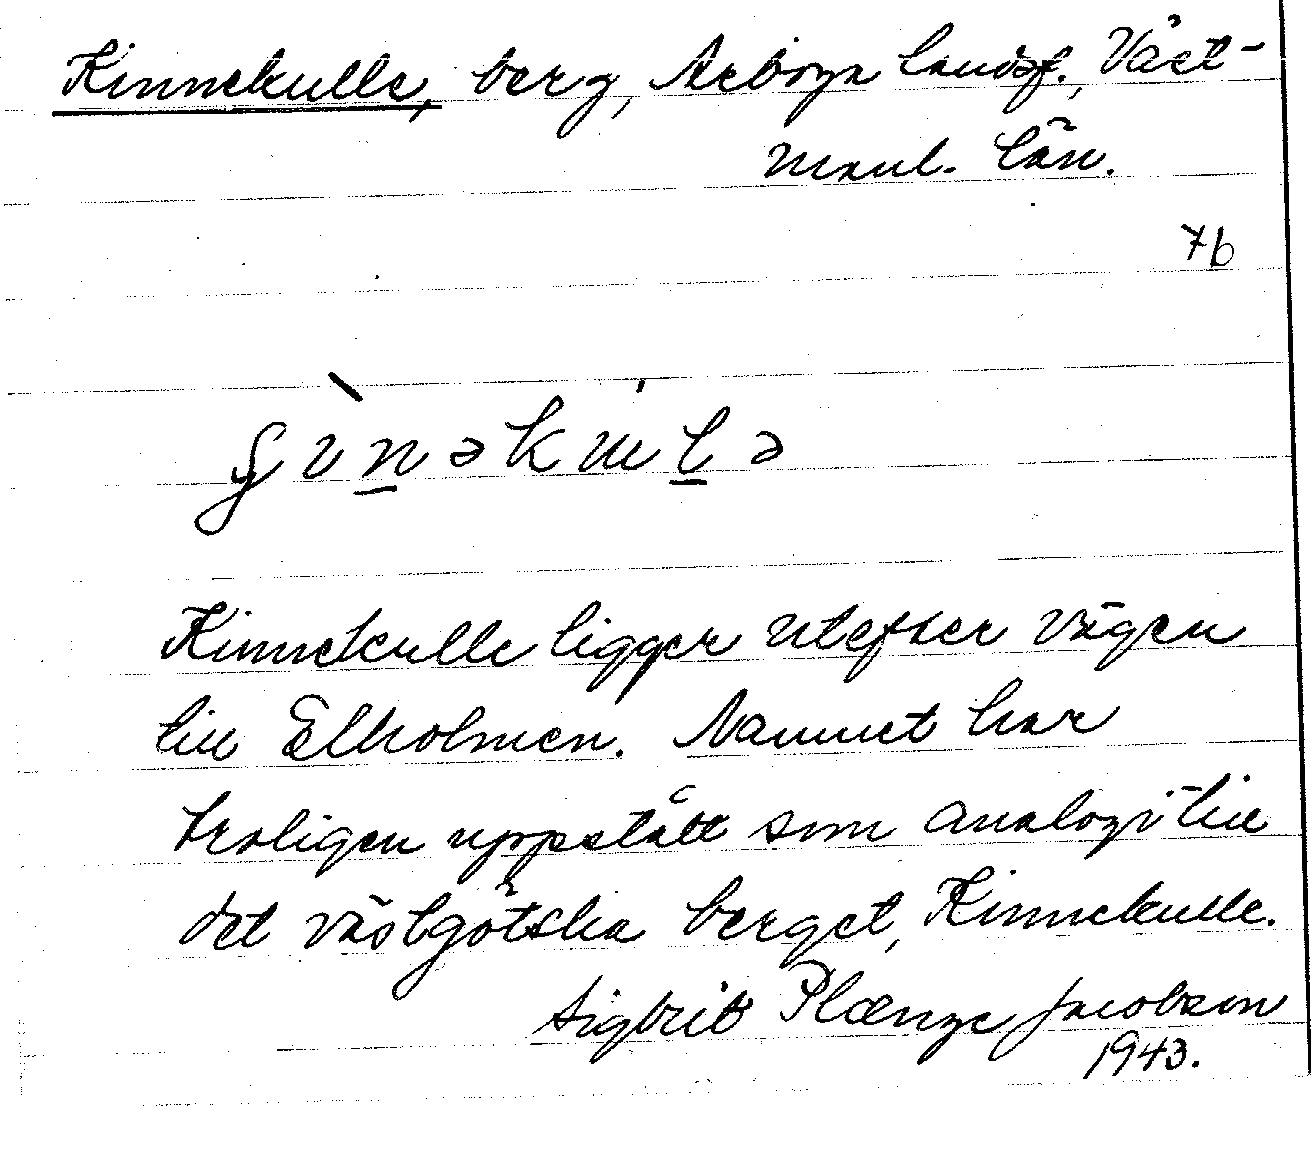 Kinnekulle, berg, Arboga landsf., Väst-
manl. län.
7b
Kinnekulle ligger utefter vägen
till Elholmen. Namnet har
troligen uppstått som analogi till
det västgötska berget, Kinnekulle.
Sigbrit Plænge Jacobson
1943.